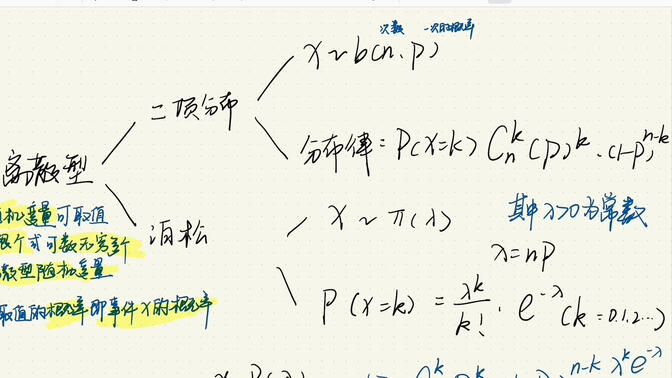 次数 一次的概率
X~b(n.p)
二项分布
分布律: P(X=k) C_n^k (p)^k.(1-p)^{n-k}
离散型
机变量可取值
限个或可数无穷个
散型随机变量
取值的概率即事件X的概率
泊松
X~π(λ) 其中λ>0为常数
λ=np
P(X=k) = \frac{λ^k}{k!} · e^{-λ} (k = 0.1.2...)
n-k λ^k e^{-λ}